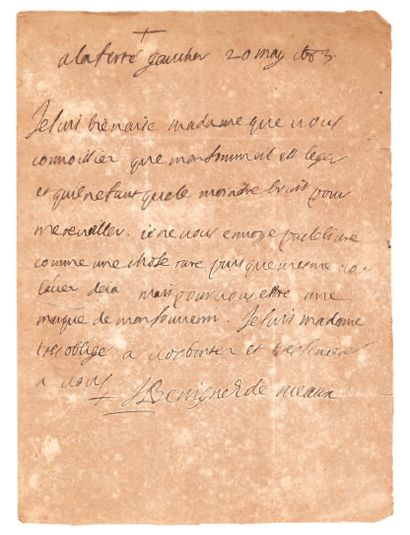 a la ferté gaucher 20 may 1683.
Je suis bien aise madame que vous
connoissiez que mon sommeil est leger
et quil ne faut que le moindre bruit pour
me reveiller. ie ne vous envoye pas le livre
comme une chose rare puis que mesme
laviez deia mais pour vous estre une
marque de mon souvenir. Je suis madame
tres obligé a vos bontez et tres sincere
a vous J Benigne é de meaux